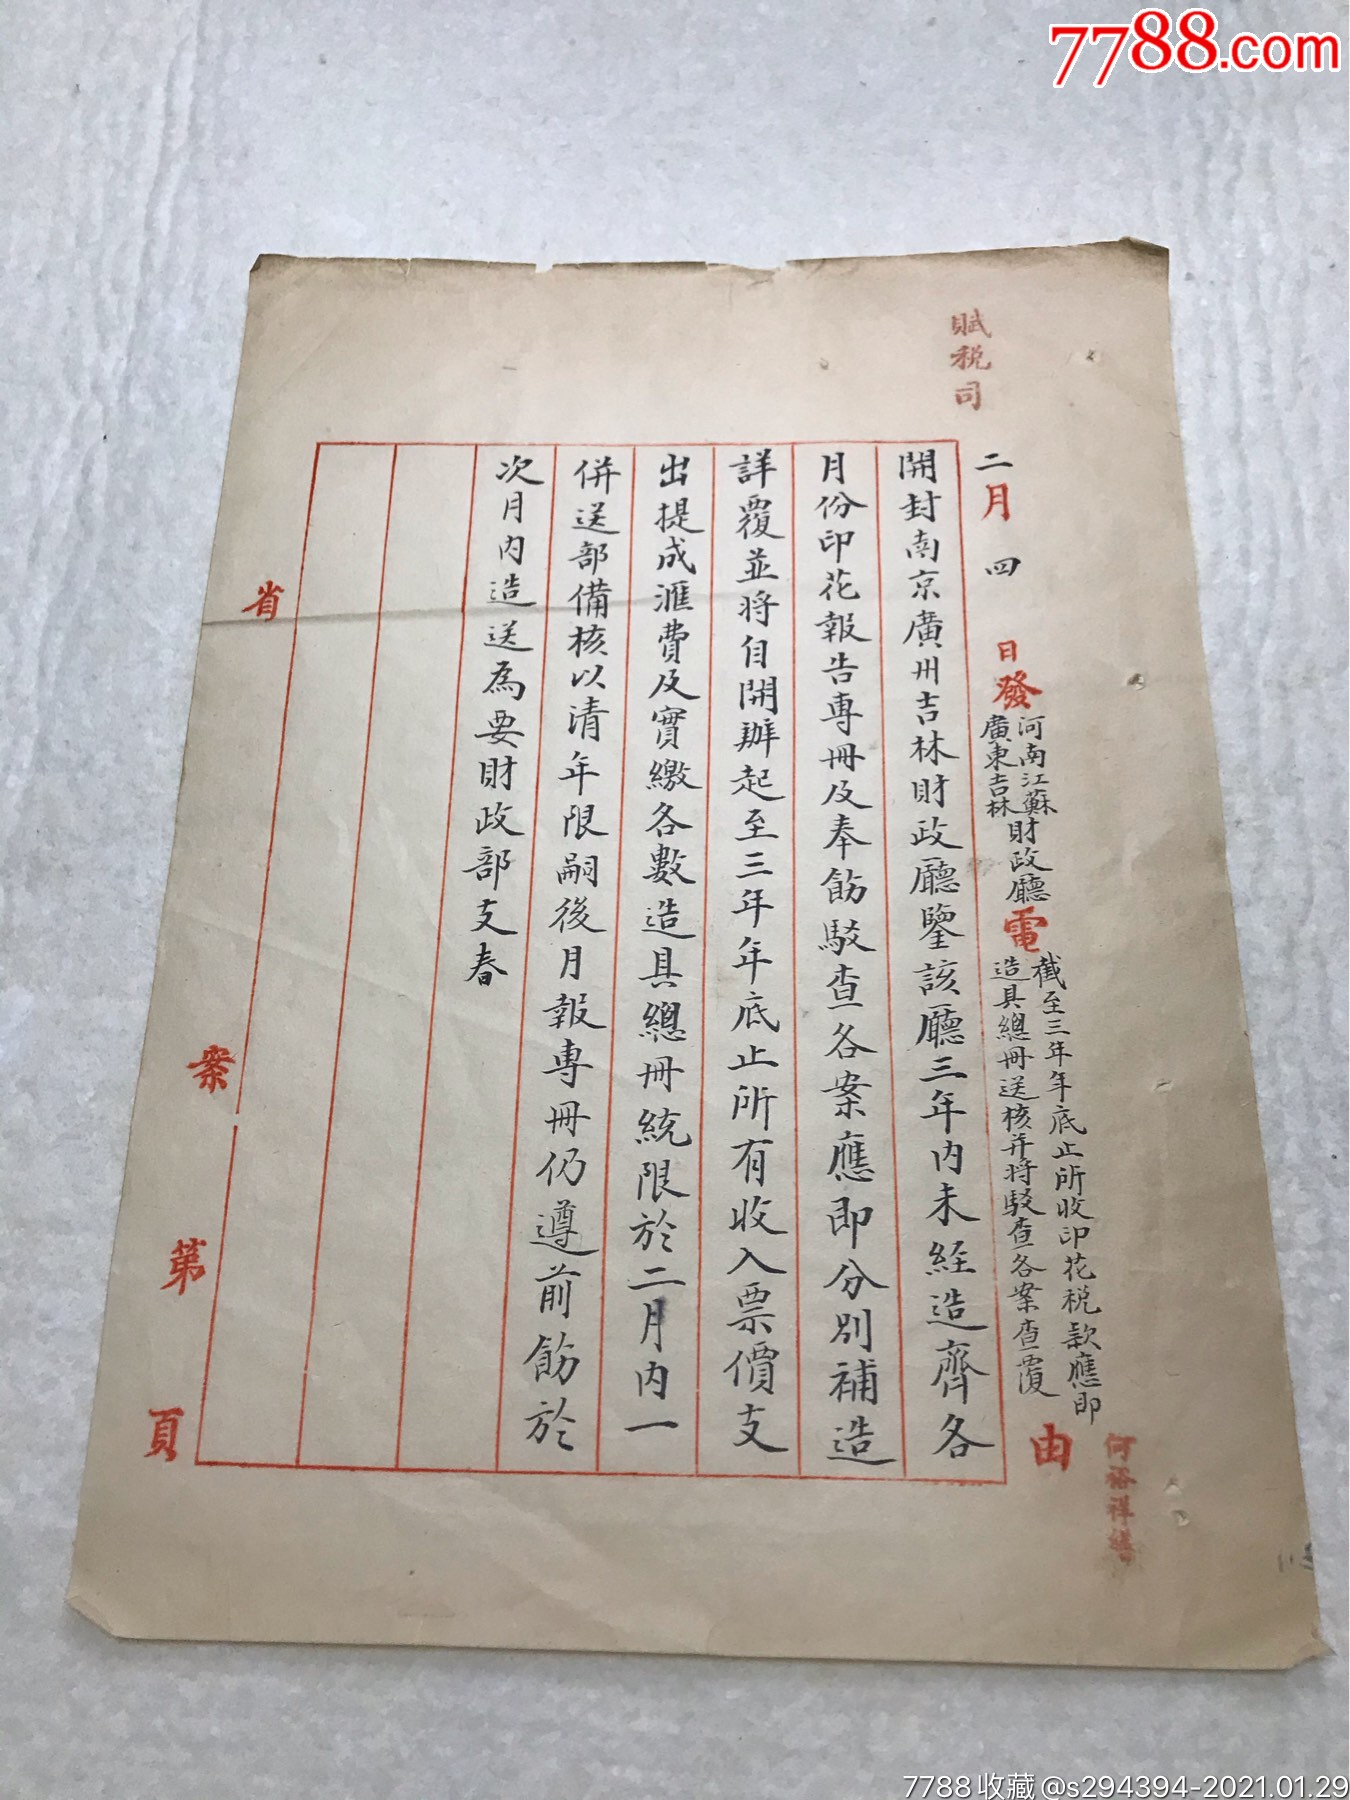 7788.com
賦税司
二月四日發河南江蘇廣東吉林財政廳電截至三年年底止所收印花税款應即造具總冊送核并將駁查各案查覆由
開封南京廣州吉林財政廳鑒該廳三年內未經造齊各
月份印花報告專冊及奉飭駁查各案應即分別補造
詳覆並將自開辦起至三年年底止所有收入票價支
出提成滙費及實繳各數造具總冊統限於二月內一
併送部備核以清年限嗣後月報專冊仍遵前飭於
次月內造送為要財政部支春
省
案
第
頁
何裕祥
7788收藏@s294394-2021.01.29